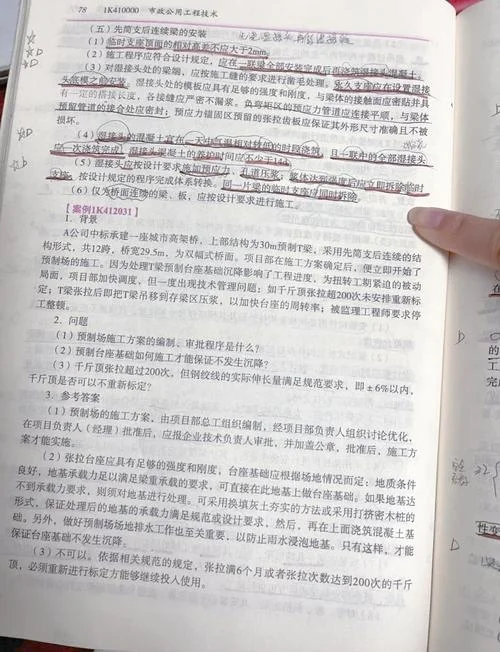 78 1K410000 市政公用工程技术
（五）先简支后连续梁的安装
（1）临时支座顶面的相对高差不应大于2mm。
（2）施工程序应符合设计规定，应在一联梁全部安装完成后再浇筑湿接头混凝土。
（3）对湿接头处的梁端，应按施工缝的要求进行凿毛处理。永久支座应在设置湿接
头底模之前安装。湿接头处的模板应具有足够的强度和刚度，与梁体的接触面应密贴并具
有一定的搭接长度，各接缝应严密不漏浆。负弯矩区的预应力管道应连接平顺，与梁体
预留管道的接合处应密封；预应力锚固区预留的张拉齿板应保证其外形尺寸准确且不被
损坏。
（4）湿接头的混凝土宜在一天中气温相对较低的时段浇筑，且一联中的全部湿接头
应一次浇筑完成。湿接头混凝土的养护时间应不少于14d。
（5）湿接头应按设计要求施加预应力、孔道压浆；浆体达到强度后应立即拆除临时
支座，按设计规定的程序完成体系转换。同一片梁的临时支座应同时拆除。
（6）仅为桥面连续的梁、板，应按设计要求进行施工。
【案例1K412031】
1. 背景
A公司中标承建一座城市高架桥，上部结构为30m预制T梁，采用先简支后连续的结
构形式，共12跨，桥宽29.5m，为双幅式桥面。项目部在施工方案确定后，便立即开始了
预制场的施工。因为处理T梁预制台座基础沉降影响了工程进度，为扭转工期紧迫的被动
局面，项目部加快调度，但一度出现技术管理问题：如千斤顶张拉超200次未安排重新标
定；T梁张拉后即把T梁吊移到存梁区压浆，以加快台座的周转率；被监理工程师要求停
工整顿。
2. 问题
（1）预制场施工方案的编制、审批程序是什么？
（2）预制台座基础如何施工才能保证不发生沉降？
（3）千斤顶张拉超过200次，但钢绞线的实际伸长量满足规范要求，即±6%以内，
千斤顶是否可以不重新标定？
3. 参考答案
（1）预制场的施工方案，由项目部总工组织编制，经项目部负责人组织讨论优化，
在项目负责人（经理）批准后，应报企业技术负责人审批，并加盖公章，批准后，施工方
案才能实施。
（2）张拉台座应具有足够的强度和刚度，台座基础应根据场地情况而定；地质条件
良好，地基承载力足以满足梁重承载力的要求，可直接在此地基上做台座基础。如果地基达
不到承载力要求，则须对地基进行处理。可采用换填灰土夯实的方法或采用打挤密木桩的
形式，保证处理后的地基的承载力满足规范或设计要求，然后，再在上面浇筑混凝土基
础。另外，做好预制场场地排水工作也至关重要，以防止雨水浸泡地基。只有这样，才能
保证台座基础不发生沉降。
（3）不可以。依据相关规范的规定，张拉满6个月或者张拉次数达到200次的千斤
顶，必须重新进行标定方能够继续投入使用。